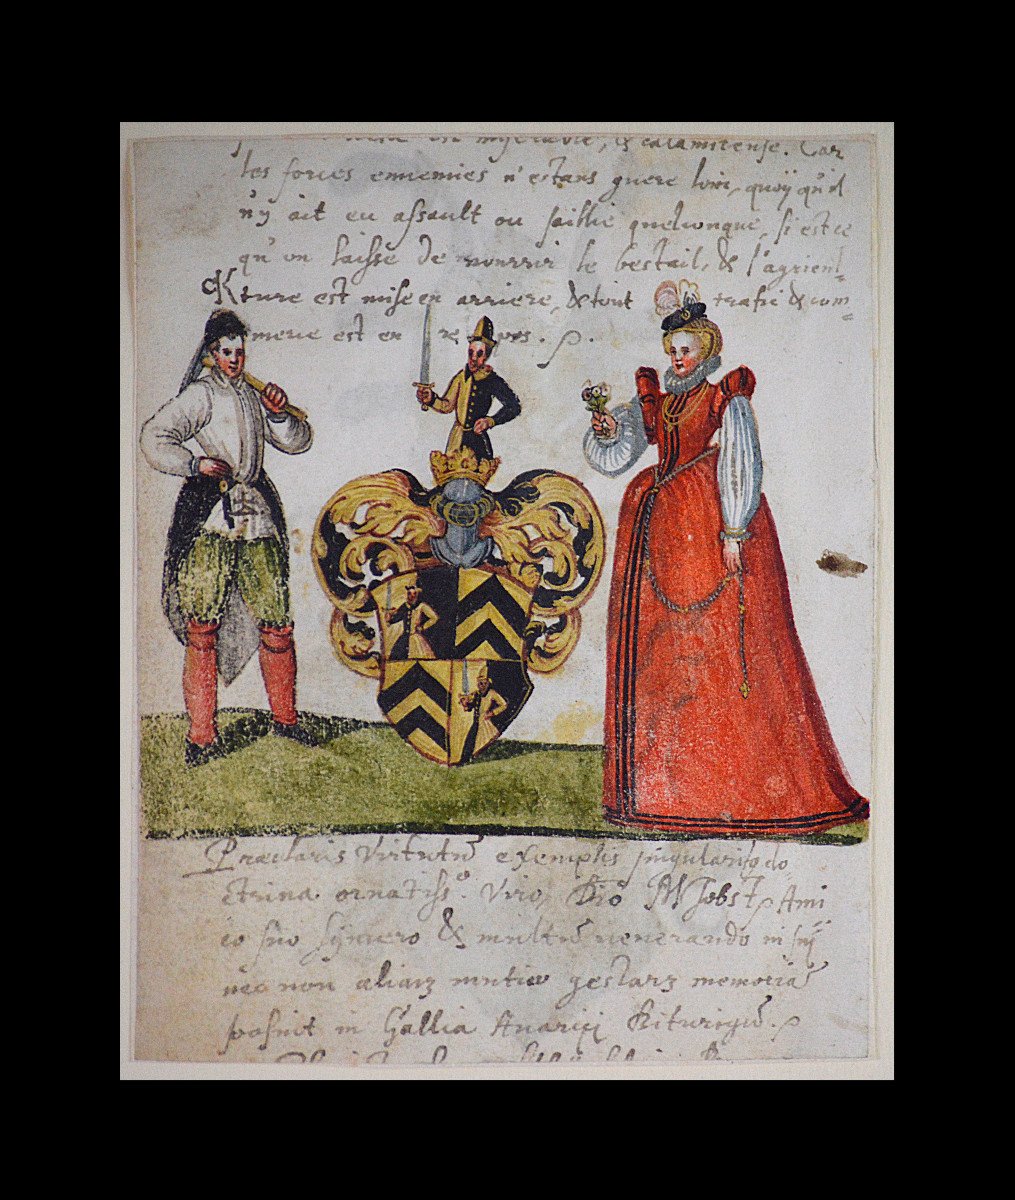 & calamiteuse. Car
les forces ennemies n'estans guere loin, quoÿ qu'il
n'y ait eu assault ou saillie quelconque, si est ce
qu'on laisse de nourrir le bestail, & l'agricul-
ture est mise en arriere, & tout trafic & com=
merce est en
Præclaris virtutū exemplis singulariq do-
ctrina ornatissº. Viro, Dnō M Jobst Ami
co suo syncero & multū uenerando in sui
nec non aliarz mutuo gestarz memoriā
posuit in Gallia Auarici Biturigū.